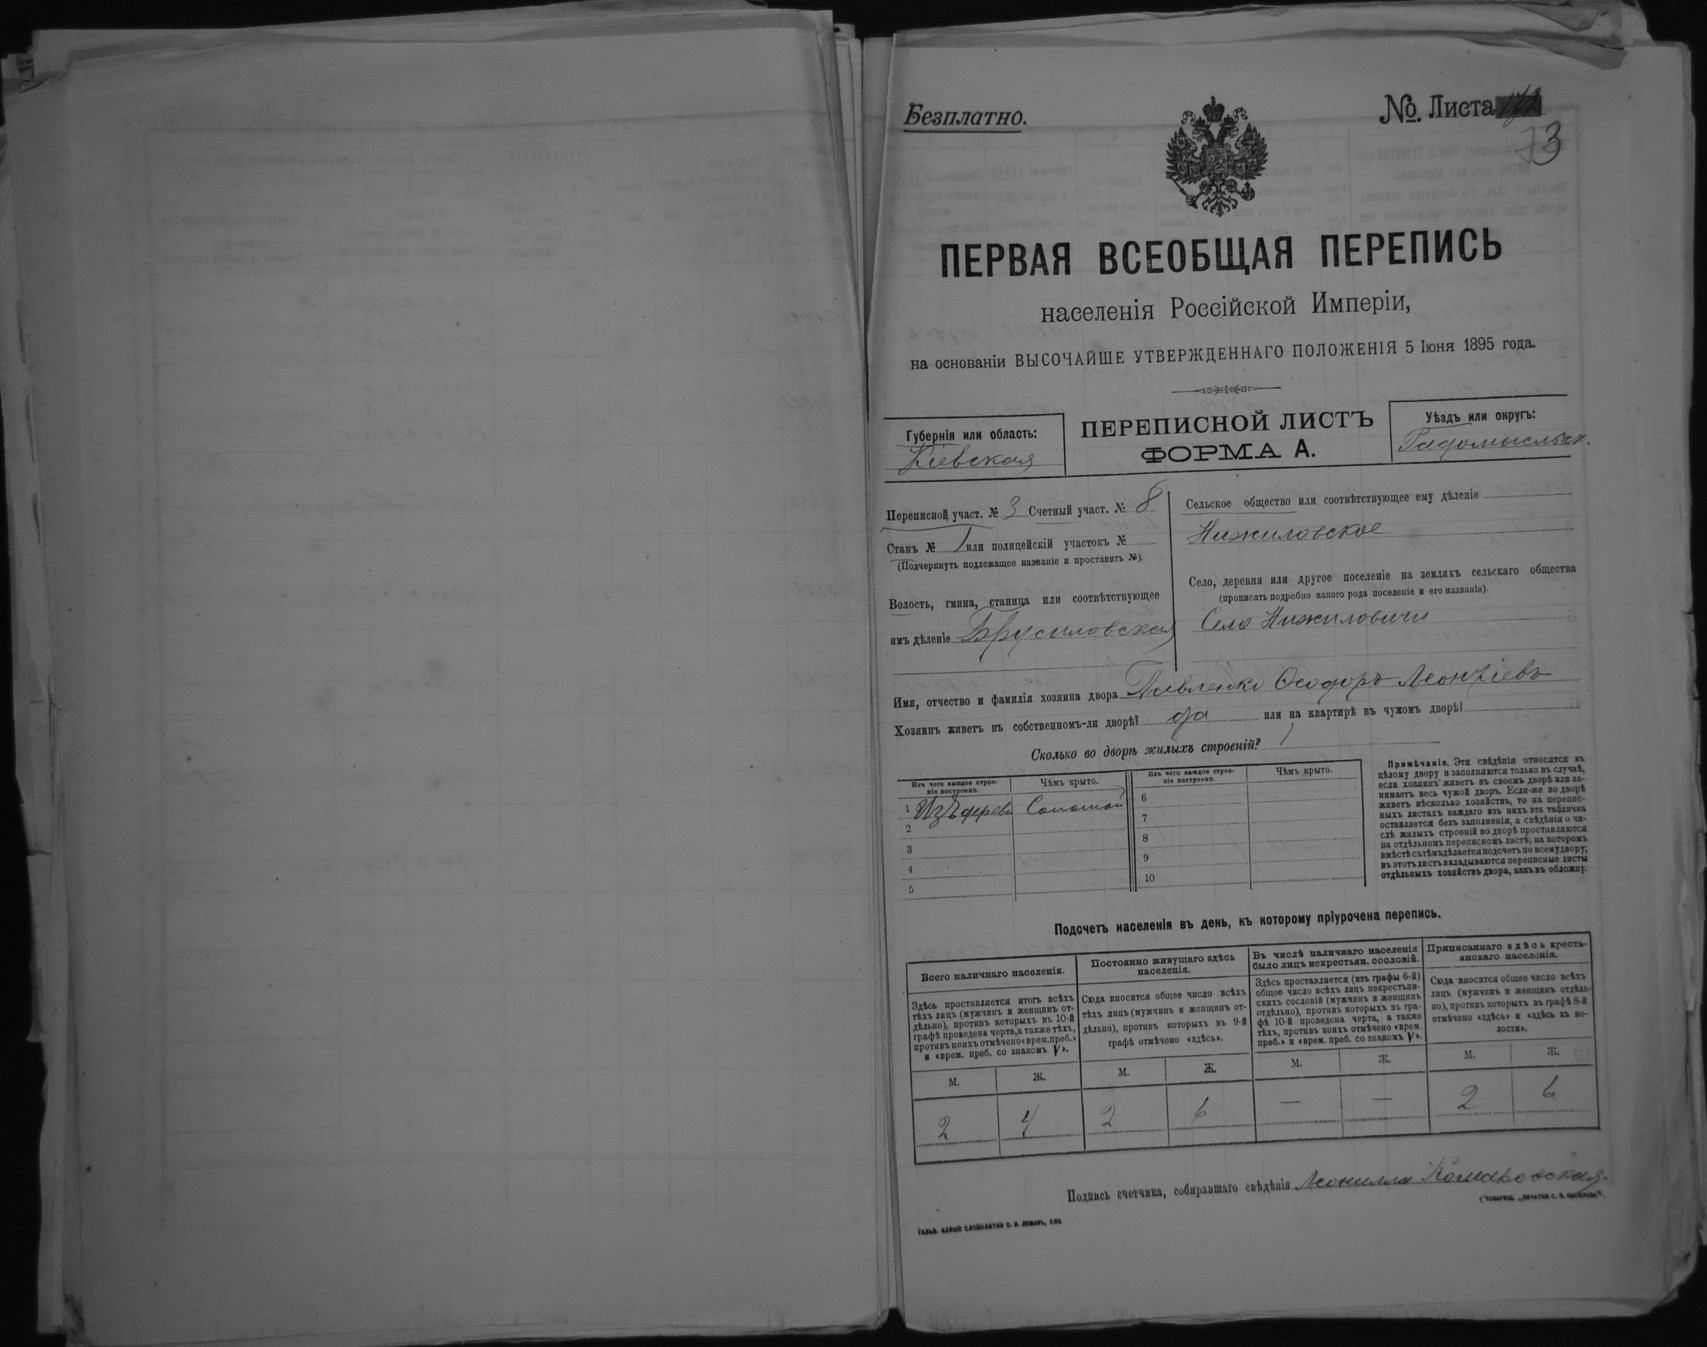 Безплатно.
№ Листа
73
ПЕРВАЯ ВСЕОБЩАЯ ПЕРЕПИСЬ
населенія Россійской Имперіи,
на основаніи ВЫСОЧАЙШЕ УТВЕРЖДЕННАГО ПОЛОЖЕНІЯ 5 Іюня 1895 года.
Губернія или область:
Кіевская
ПЕРЕПИСНОЙ ЛИСТЪ
ФОРМА А.
Уѣздъ или округъ:
Радомысльск.
Переписной участ. № 3 Счетный участ. № 8
Станъ № 1 или полицейскій участокъ №
(Подчеркнуть подлежащее названіе и проставить №).
Волость, гмина, станица или соотвѣтствующее
имъ дѣленіе Брусиловская
Сельское общество или соотвѣтствующее ему дѣленіе
Нижиловское
Село, деревня или другое поселеніе на земляхъ сельскаго общества
(прописать подробно какого рода поселеніе и его названіе)
Село Нижиловичи
Имя, отчество и фамилія хозяина двора Павленко Ѳеодоръ Леонтіевъ
Хозяинъ живетъ въ собственномъ-ли дворѣ? да или на квартирѣ въ чужомъ дворѣ?
Сколько во дворѣ жилыхъ строеній? 1
Изъ чего каждое строе-
ніе построено.
Чѣмъ крыто.
Изъ чего каждое строе-
ніе построено.
Чѣмъ крыто.
1 Изъ дерева Соломой
2
3
4
5
6
7
8
9
10
Примѣчаніе. Эти свѣдѣнія относятся къ
цѣлому двору и заполняются только въ случаѣ,
если хозяинъ живетъ въ своемъ дворѣ или за-
нимаетъ весь чужой дворъ. Если-же во дворѣ
живетъ нѣсколько хозяйствъ, то на перепис-
ныхъ листахъ каждаго изъ нихъ эта табличка
оставляется безъ заполненія, а свѣдѣнія о чи-
слѣ жилыхъ строеній во дворѣ проставляются
на отдѣльномъ переписномъ листѣ, на которомъ
вмѣстѣ съ тѣмъ дѣлается подсчетъ по всему двору;
въ этотъ листъ вкладываются переписные листы
отдѣльныхъ хозяйствъ двора, какъ въ обложку.
Подсчетъ населенія въ день, къ которому пріурочена перепись.
Всего наличнаго населенія.
Здѣсь проставляется итогъ всѣхъ
тѣхъ лицъ (мужчинъ и женщинъ от-
дѣльно), противъ которыхъ въ 10-й
графѣ проведена черта, а также тѣхъ,
противъ коихъ отмѣчено «врем. преб.»
и «врем. преб. со знакомъ V».
М. Ж.
2 4
Постоянно живущаго здѣсь
населенія.
Сюда вносится общее число всѣхъ
тѣхъ лицъ (мужчинъ и женщинъ от-
дѣльно), противъ которыхъ въ 9-й
графѣ отмѣчено «здѣсь».
М. Ж.
2 6
Въ числѣ наличнаго населенія
было лицъ некрестьян. сословій.
Здѣсь проставляется (изъ графы 6-й)
общее число всѣхъ лицъ некрестьян-
скихъ сословій (мужчинъ и женщинъ
отдѣльно), противъ которыхъ въ гра-
фѣ 10-й проведена черта, а также
тѣхъ, противъ коихъ отмѣчено «врем.
преб.» и «врем. преб. со знакомъ V».
М. Ж.
— —
Приписаннаго здѣсь кресть-
янскаго населенія.
Сюда вносится общее число всѣхъ
лицъ (мужчинъ и женщинъ отдѣль-
но), противъ которыхъ въ графѣ 8-й
отмѣчено «здѣсь» и «здѣсь къ во-
лости».
М. Ж.
2 6
Подпись счетчика, собиравшаго свѣдѣнія Леонилла Комаровская.
ГАЛЬВ. КЛИШЕ СЛОВОЛИТНИ О. И. ЛЕМАНЪ, СПБ
(ТОВАРИЩ. „ПЕЧАТНЯ С. П. ЯКОВЛЕВА“)